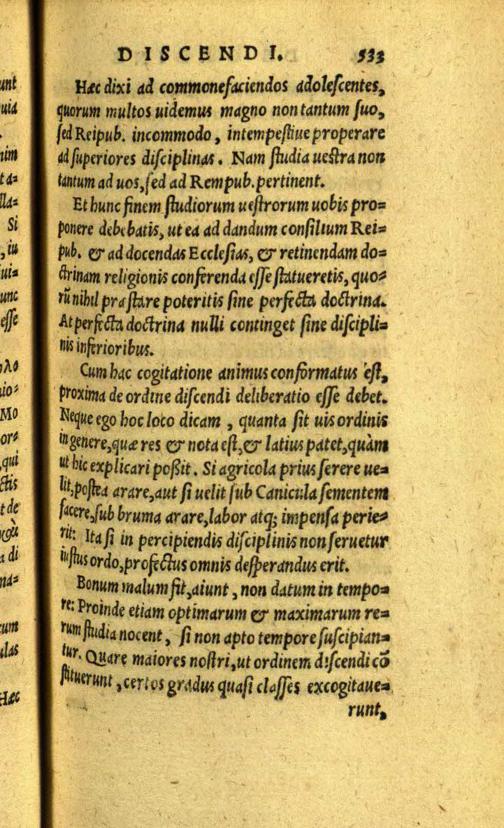 DISCENDI. 533
Hæc dixi ad commonefaciendos adolescentes,
quorum multos uidemus magno non tantum suo,
sed Reipub. incommodo, intempestiue properare
ad superiores disciplinas. Nam studia uestra non
tantum ad uos, sed ad Rempub. pertinent.
Et hunc finem studiorum uestrorum uobis pro=
ponere debebatis, ut ea ad dandum consilium Rei=
pub. & ad docendas Ecclesias, & retinendam do=
ctrinam religionis conferenda esse statueretis, quo=
rũ nihil præstare poteritis sine perfecta doctrina.
At perfecta doctrina nulli continget sine discipli=
nis inferioribus.
Cum hac cogitatione animus conformatus est,
proxima de ordine discendi deliberatio esse debet.
Neque ego hoc loco dicam, quanta sit uis ordinis
in genere, quæ res & nota est, & latius patet, quàm
ut hic explicari poßit. Si agricola prius serere ue=
lit, postea arare, aut si uelit sub Canicula sementem
facere, sub bruma arare, labor atq; impensa perie=
rit: Ita si in percipiendis disciplinis non seruetur
iustus ordo, profectus omnis desperandus erit.
Bonum malum fit, aiunt, non datum in tempo=
re: Proinde etiam optimarum & maximarum re=
rum studia nocent, si non apto tempore suscipian=
tur. Quare maiores nostri, ut ordinem discendi cõ
stituerunt, certos gradus quasi classes excogitaue=
runt,
unt
uia
nim
ta=
lla=
Si
, iu
ui=
unc
esse
nio=
Mo
or=
, qui
ctis
t de
a di
na=
cum
ulas
Hæc